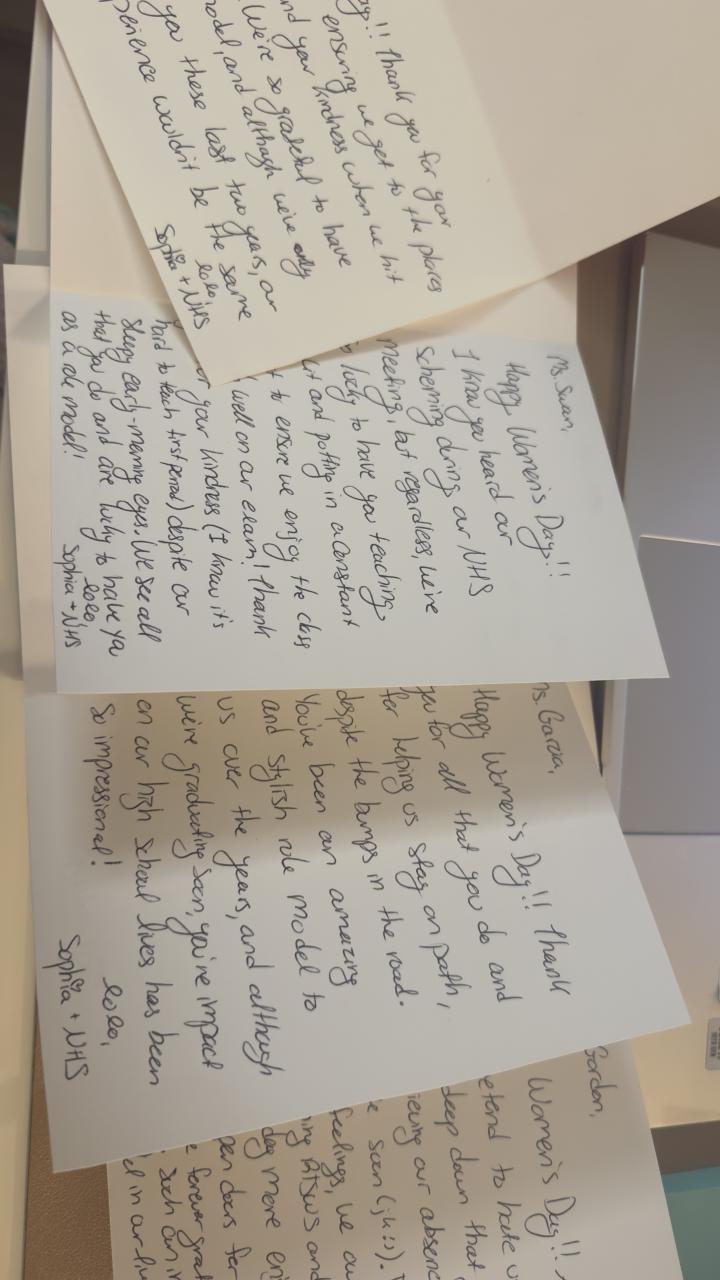 !! Thank you for your
ensuring we get to the places
and your kindness when we hit
We're so grateful to have
model, and although we've only
you these last two years, our
perience wouldn't be the same
xoxo,
Sophia + NHS
Ms. Swan,
Happy Women's Day!!
I know you heard our
scheming during our NHS
meeting, but regardless, we're
so lucky to have you teaching
and putting in a constant
to ensure we enjoy the class
well on our exam! Thank
your kindness (I know it's
hard to teach first period) despite our
sleepy early-morning eyes. We see all
that you do and are lucky to have you
as a role model!
xoxo,
Sophia + NHS
Ms. Garcia,
Happy Women's Day!! Thank
you for all that you do and
for helping us stay on path,
despite the bumps in the road.
You've been an amazing
and stylish role model to
us over the years, and although
we're graduating soon, you're impact
on our high school lives has been
so impressional!
xoxo,
Sophia + NHS
Gordon,
Women's Day!!
etend to hate u
deep down that
iewing our absenc
soon (jk :)).
feelings, we ou
day more en
doors for
forever grat
such an i
in our li